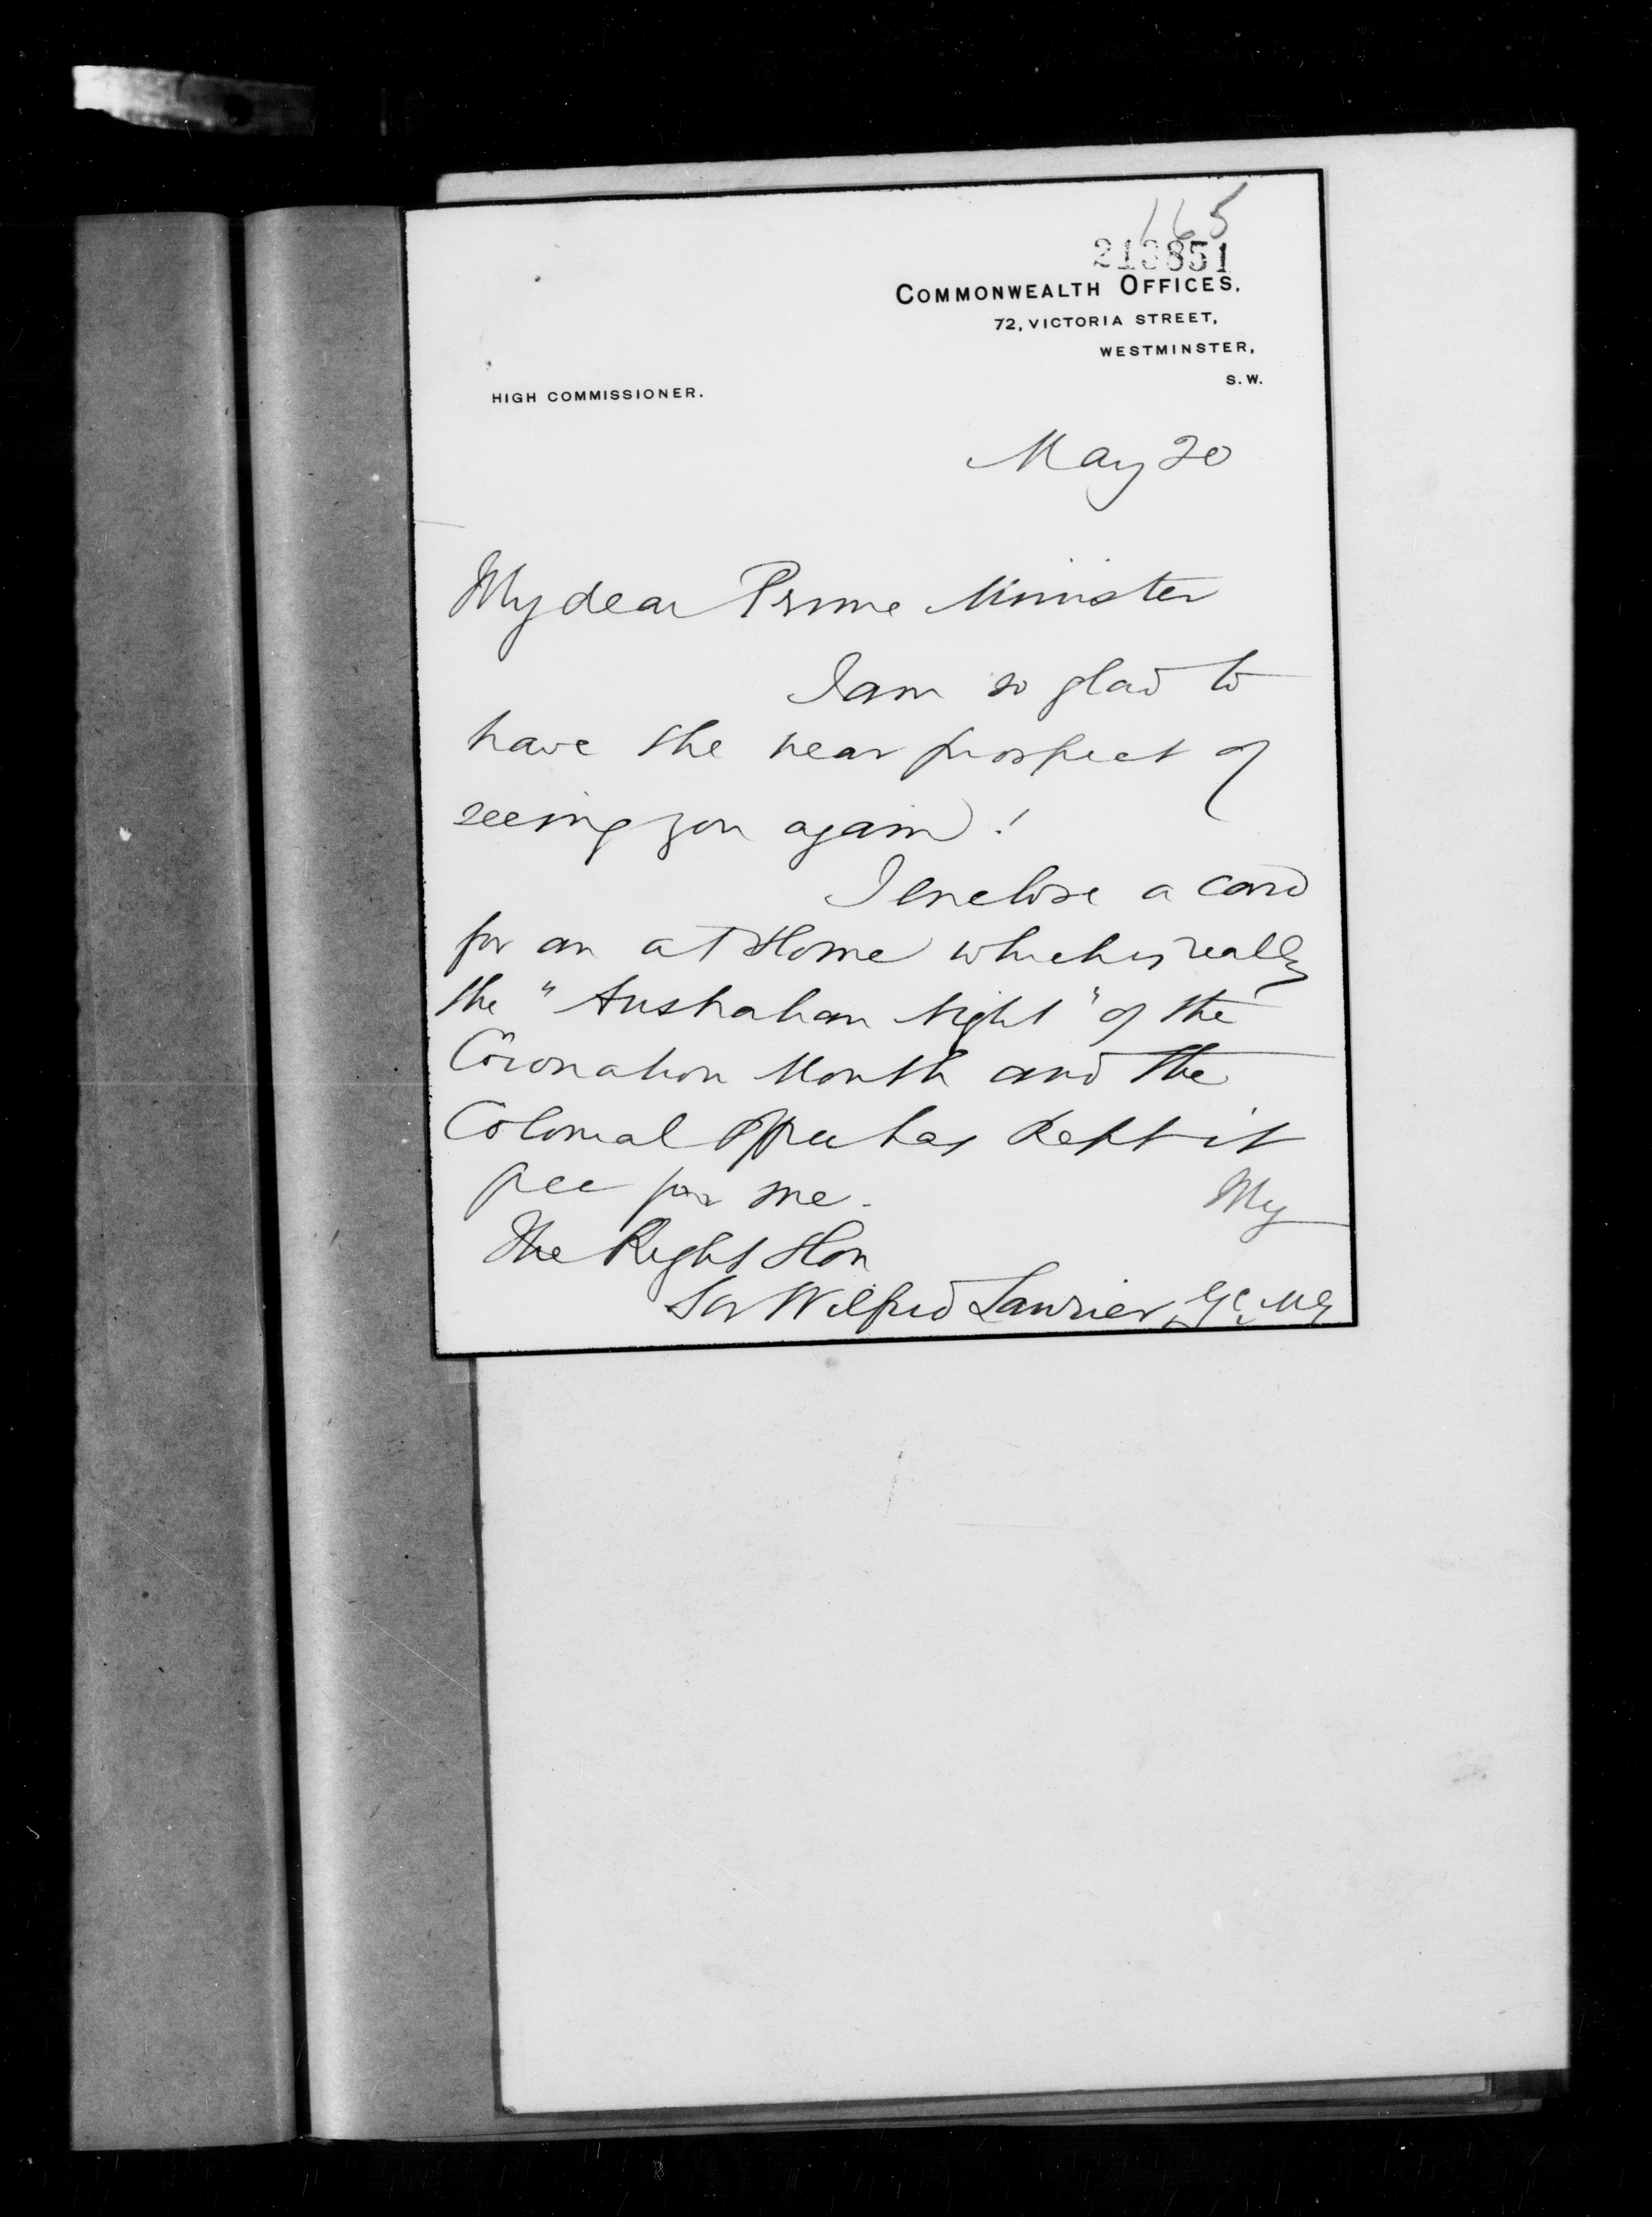 165
213851
COMMONWEALTH OFFICES.
72, VICTORIA STREET,
WESTMINSTER,
S.W.
HIGH COMMISSIONER.
May 20
My dear Prime Minister
I am so glad to
have the near prospect of
seeing you again!
I enclose a card
for an at Home which is really
the "Australian Night" of the
Coronation Month and the
Colonial Office has kept it
free for me.
My
The Right Hon
Sir Wilfrid Laurier, G.C.M.G